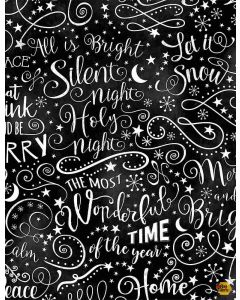 All is Bright
Let it
Snow
ACE
Silent
Night
at
ink
Holy
ND BE
RRY
Night
THE MOST
Wonderful
TIME
of the year
Me
and
Brig
Calm
eace
Home